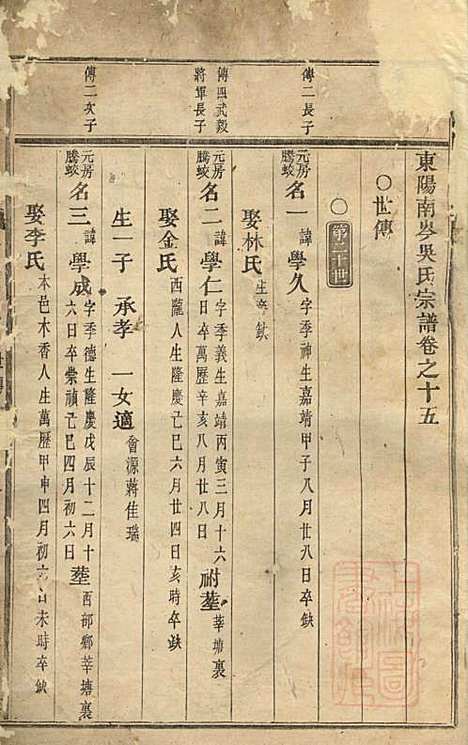 東陽南岑吳氏宗譜卷之十五
〇世傳
〇第二十世
傳二長子
元房騰蛟 名一 諱 學久 字季神生嘉靖甲子八月廿八日卒缺
娶林氏 生卒缺
傳四武毅將軍長子
元房騰蛟 名二 諱 學仁 字季義生嘉靖丙寅三月十六日卒萬歷辛亥八月廿八日 祔塟 莘塘裏
娶金氏 西隴人生隆慶己巳六月廿四日亥時卒缺
生一子 承孝 一女適 會源蔣佳瑞
傳二次子
元房騰蛟 名三 諱 學成 字季德生隆慶戊辰十二月十六日卒崇禎己巳四月初六日 塟 西部鄉莘塘裏
娶李氏 本邑木香人生萬歷甲申四月初六日未時卒缺